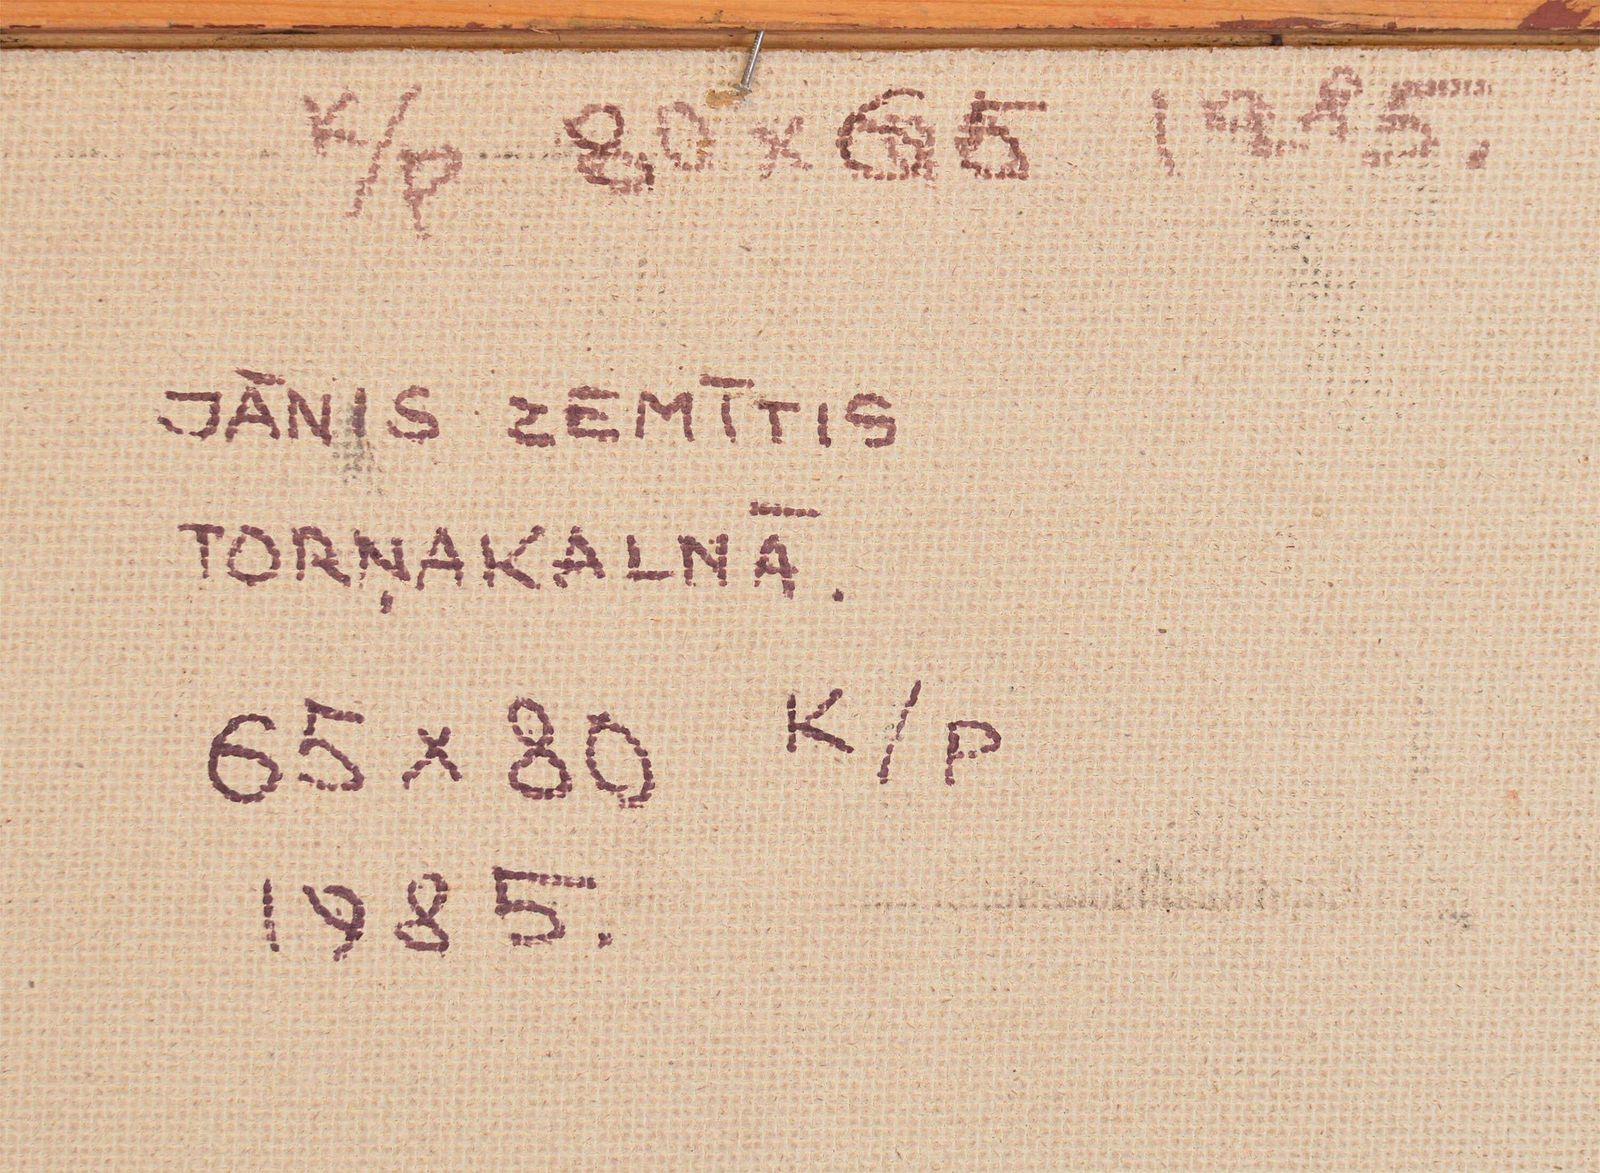 K/P 80 x 65 1985.
JĀNIS ZEMĪTIS
TORŅAKALNĀ.
65 x 80 K/P
1985.